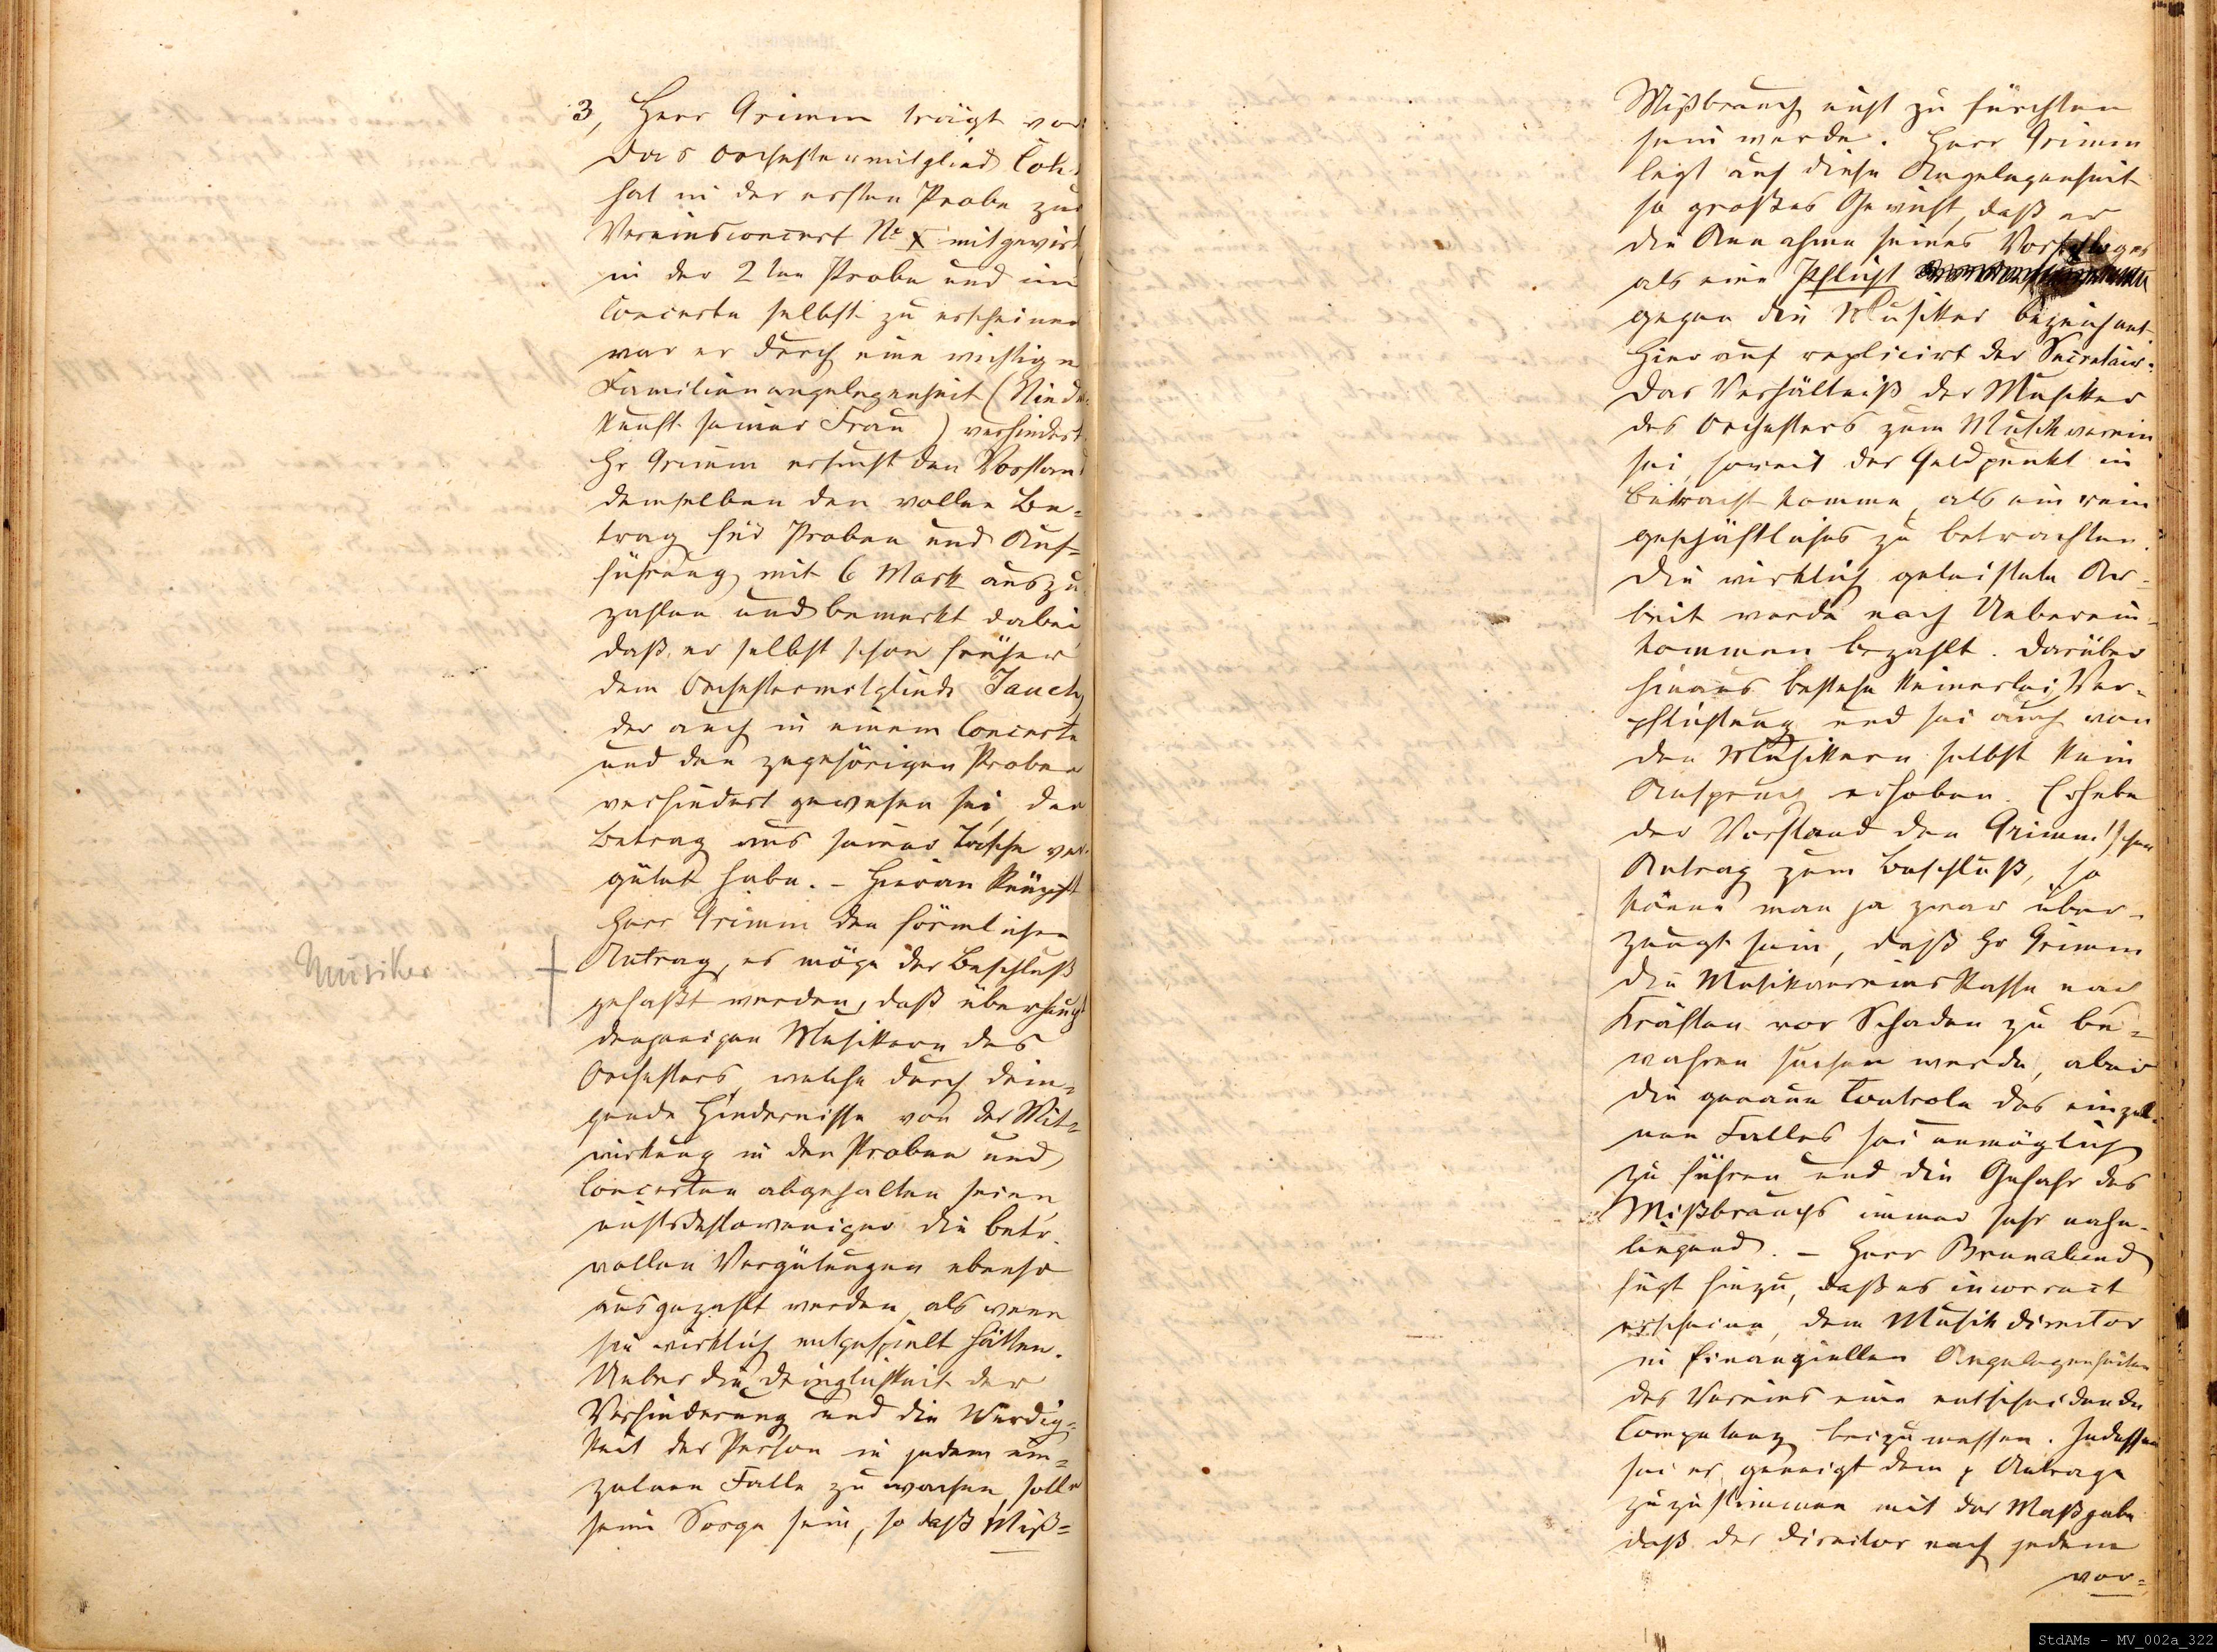 3, Herr Grimm trägt vor:
das Orchestermitglied Toh
hat in der ersten Probe zum
Vereinsconcert No X mitgewirkt,
in der 2ten Probe und im
Concerte selbst zu erscheinen
war er durch eine wichtige
Familienangelegenheit (Nieder-
kunft seiner Frau) verhindert.
Hr Grimm ersucht den Vorstand
demselben den vollen Be-
trag für Proben und Auf-
führung mit 6 Mark auszu-
zahlen und bemerkt dabei,
daß er selbst schon früher
dem Orchestermitgliede Jauch,
der auch in einem Concerte
und den zugehörigen Proben
verhindert gewesen sei, den
Betrag aus seiner Tasche ver-
gütet habe. – Hieran knüpft
Herr Grimm den förmlichen
Musiker
Antrag, es möge der Beschluß
gefaßt werden, daß überhaupt
denjenigen Musikern des
Orchesters, welche durch drin-
gende Hindernisse von der Mit-
wirkung in den Proben und
Concerten abgehalten seien
nichtsdestoweniger die betr.
vollen Vergütungen ebenso
ausgezahlt werden, als wenn
sie wirklich mitgespielt hätten.
Ueber die Dringlichkeit der
Verhinderung und die Würdig-
keit der Person in jedem ein-
zelnen Falle zu wachen, solle
seine Sorge sein, so daß Miß-
Mißbrauch nicht zu fürchten
sein werde. Herr Grimm
legt auf diese Angelegenheit
so großes Gewicht, daß er
die Annahme seines Vorschlages
als eine Pflicht
gegen die Musiker bezeichnet.
Hierauf replicirt der Secretair:
Das Verhältniß der Musiker
des Orchesters zum Musikverein
sei, soweit der Geldpunkt in
Betracht komme, als ein rein
geschäftliches zu betrachten.
Die wirklich geleistete Ar-
beit werde nach Ueberein-
kommen bezahlt. Darüber
hinaus bestehe keinerlei Ver-
pflichtung und sei auch von
den Musikern selbst kein
Anspruch erhoben. Erhebe
der Vorstand den Grimm'schen
Antrag zum Beschluß, so
könne man ja zwar über-
zeugt sein, daß Hr Grimm
die Musikvereinskasse nach
Kräften vor Schaden zu be-
wahren suchen werde, aber
die genaue Controle des einzel-
nen Falles sei unmöglich
zu führen und die Gefahr des
Mißbrauchs immer sehr nahe-
liegend. – Herr Brunabend
fügt hinzu, daß es incorrect
erscheine, dem Musikdirector
in finanziellen Angelegenheiten
des Vereins eine entscheidende
Competenz beizumessen. Indessen
sei er geneigt dem p Antrage
zuzustimmen mit der Maßgabe
daß der Director nach jedem
vor-
StdAMs - MV_002a_322